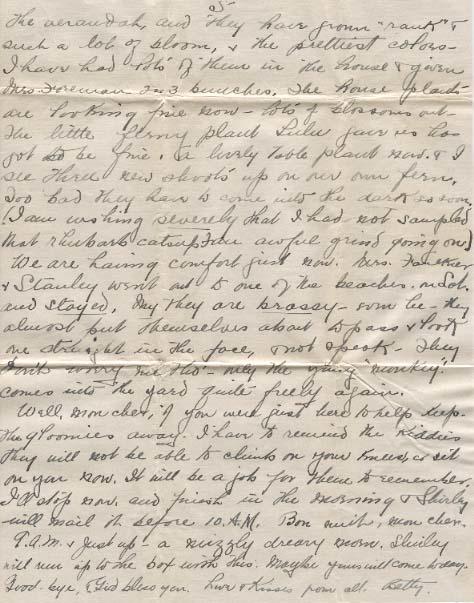 5
the verandah, and they have grown "rank" &
such a lot of bloom, & the prettiest colors -
I have had lots of them in the house & given
Mrs. Foreman 2 or 3 bunches. The house plants
are looking fine now - lots of blossoms out -
The little plant Lulu gave us has
got to be fine. A lovely table plant now. & I
see three new shoots up on our own fern.
Too bad they have to come into the dark so soon.
(I am wishing severely that I had not sampled
that rhubarb catsup - an awful grind going on)
We are having comfort just now. Mrs.
& Stanley went out to one of the beaches on Sat.
and stayed. My they are brassy - even be - they
almost put themselves about to pass & look
one straight in the face, & not speak - They
don't worry me tho' - only the young "monkey"
comes into the yard quite freely again.
Well, mon cher, if you were just here to help keep
the gloomies away. I have to remind the Kiddies
they will not be able to climb on your knees, or sit
on you now. It will be a job for them to remember.
I'll stop now, and finish in the morning & Shirley
will mail it before 10 A.M. Bon nuit, mon cher.
7 A.M. & just up - a mizzly dreary morn. Shirley
will run up to the box with this. Maybe yours will come to-day.
Good-bye, & God bless you. Love & Kisses from all. Betty.